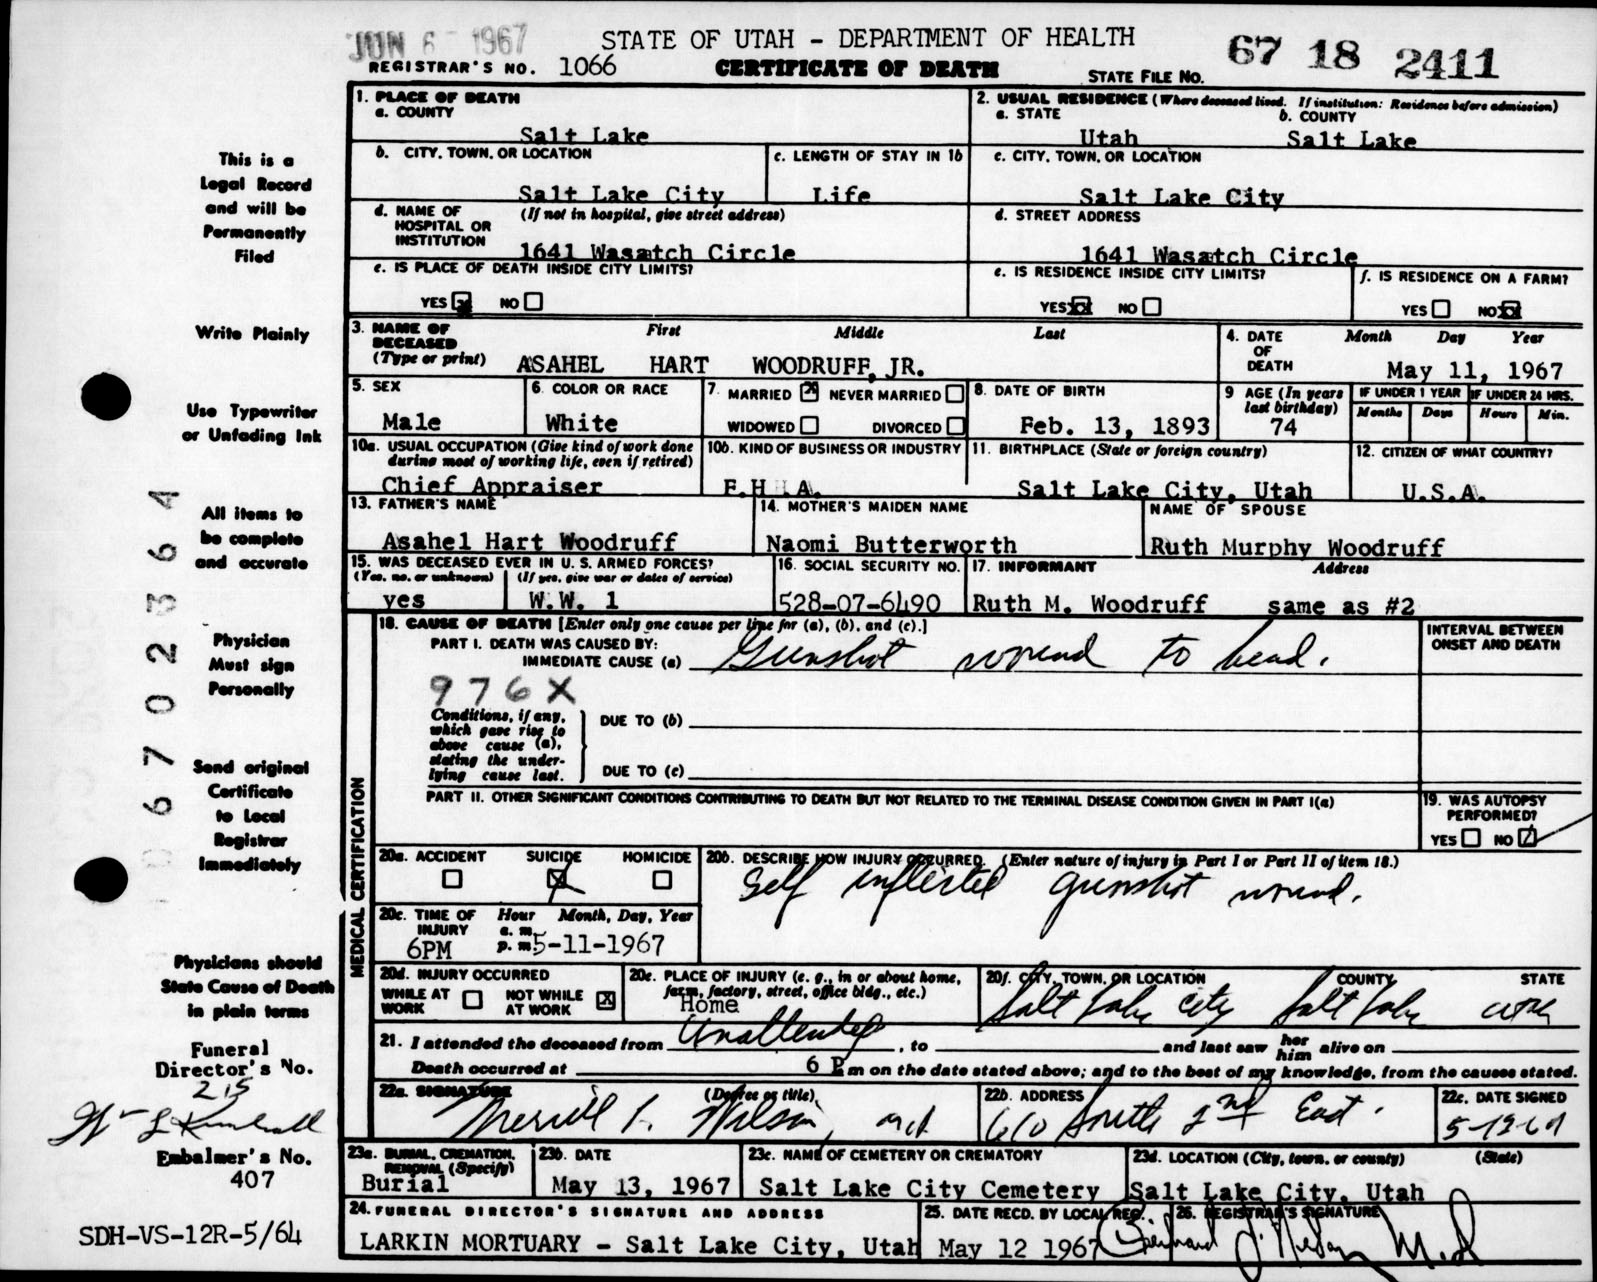 JUN 6 1967
STATE OF UTAH - DEPARTMENT OF HEALTH
67 18 2411
REGISTRAR'S NO. 1066
CERTIFICATE OF DEATH
STATE FILE NO.
1. PLACE OF DEATH
a. COUNTY
Salt Lake
2. USUAL RESIDENCE (Where deceased lived. If institution: Residence before admission)
a. STATE
Utah
b. COUNTY
Salt Lake
b. CITY, TOWN, OR LOCATION
Salt Lake City
c. LENGTH OF STAY IN 1b
Life
c. CITY, TOWN, OR LOCATION
Salt Lake City
d. NAME OF HOSPITAL OR INSTITUTION
(If not in hospital, give street address)
1641 Wasatch Circle
d. STREET ADDRESS
1641 Wasatch Circle
e. IS PLACE OF DEATH INSIDE CITY LIMITS?
YES X NO
e. IS RESIDENCE INSIDE CITY LIMITS?
YES XX NO
f. IS RESIDENCE ON A FARM?
YES NO XX
3. NAME OF DECEASED
(Type or print)
First Middle Last
ASAHEL HART WOODRUFF, JR.
4. DATE OF DEATH
Month Day Year
May 11, 1967
5. SEX
Male
6. COLOR OR RACE
White
7. MARRIED X NEVER MARRIED
WIDOWED DIVORCED
8. DATE OF BIRTH
Feb. 13, 1893
9 AGE (In years last birthday)
74
IF UNDER 1 YEAR
Months Days
IF UNDER 24 HRS.
Hours Min.
10a. USUAL OCCUPATION (Give kind of work done during most of working life, even if retired)
Chief Appraiser
10b. KIND OF BUSINESS OR INDUSTRY
F.H.A.
11. BIRTHPLACE (State or foreign country)
Salt Lake City, Utah
12. CITIZEN OF WHAT COUNTRY?
U.S.A.
13. FATHER'S NAME
Asahel Hart Woodruff
14. MOTHER'S MAIDEN NAME
Naomi Butterworth
NAME OF SPOUSE
Ruth Murphy Woodruff
15. WAS DECEASED EVER IN U. S. ARMED FORCES?
(Yes, no, or unknown) (If yes, give war or dates of service)
yes W.W. 1
16. SOCIAL SECURITY NO.
528-07-6490
17. INFORMANT Address
Ruth M. Woodruff same as #2
18. CAUSE OF DEATH [Enter only one cause per line for (a), (b), and (c).]
PART I. DEATH WAS CAUSED BY:
IMMEDIATE CAUSE (a) Gunshot wound to head.
INTERVAL BETWEEN ONSET AND DEATH
976X
Conditions, if any, which gave rise to above cause (a), stating the underlying cause last.
DUE TO (b)
DUE TO (c)
PART II. OTHER SIGNIFICANT CONDITIONS CONTRIBUTING TO DEATH BUT NOT RELATED TO THE TERMINAL DISEASE CONDITION GIVEN IN PART I(a)
19. WAS AUTOPSY PERFORMED?
YES NO
MEDICAL CERTIFICATION
20a. ACCIDENT SUICIDE HOMICIDE
X
20b. DESCRIBE HOW INJURY OCCURRED. (Enter nature of injury in Part I or Part II of item 18.)
Self inflicted gunshot wound.
20c. TIME OF INJURY
Hour Month, Day, Year
a. m.
p. m.
6PM 5-11-1967
20d. INJURY OCCURRED
WHILE AT WORK NOT WHILE AT WORK X
20e. PLACE OF INJURY (e. g., in or about home, farm, factory, street, office bldg., etc.)
Home
20f. CITY, TOWN, OR LOCATION COUNTY STATE
Salt Lake City Salt Lake Utah
21. I attended the deceased from Unattended, to and last saw her him alive on
Death occurred at 6 P m on the date stated above; and to the best of my knowledge, from the causes stated.
22a. SIGNATURE (Degree or title)
Merrill L. Wilson, md
22b. ADDRESS
610 South 2nd East.
22c. DATE SIGNED
5-12-67
23a. BURIAL, CREMATION, REMOVAL (Specify)
Burial
23b. DATE
May 13, 1967
23c. NAME OF CEMETERY OR CREMATORY
Salt Lake City Cemetery
23d. LOCATION (City, town, or county) (State)
Salt Lake City, Utah
24. FUNERAL DIRECTOR'S SIGNATURE AND ADDRESS
LARKIN MORTUARY - Salt Lake City, Utah
25. DATE RECD. BY LOCAL REG.
May 12 1967
26. REGISTRAR'S SIGNATURE
This is a
Legal Record
and will be
Permanently
Filed
Write Plainly
Use Typewriter
or Unfading Ink
All items to
be complete
and accurate
Physician
Must sign
Personally
Send original
Certificate
to Local
Registrar
Immediately
Physicians should
State Cause of Death
in plain terms
Funeral
Director's No.
215
Embalmer's No.
407
SDH-VS-12R-5/64